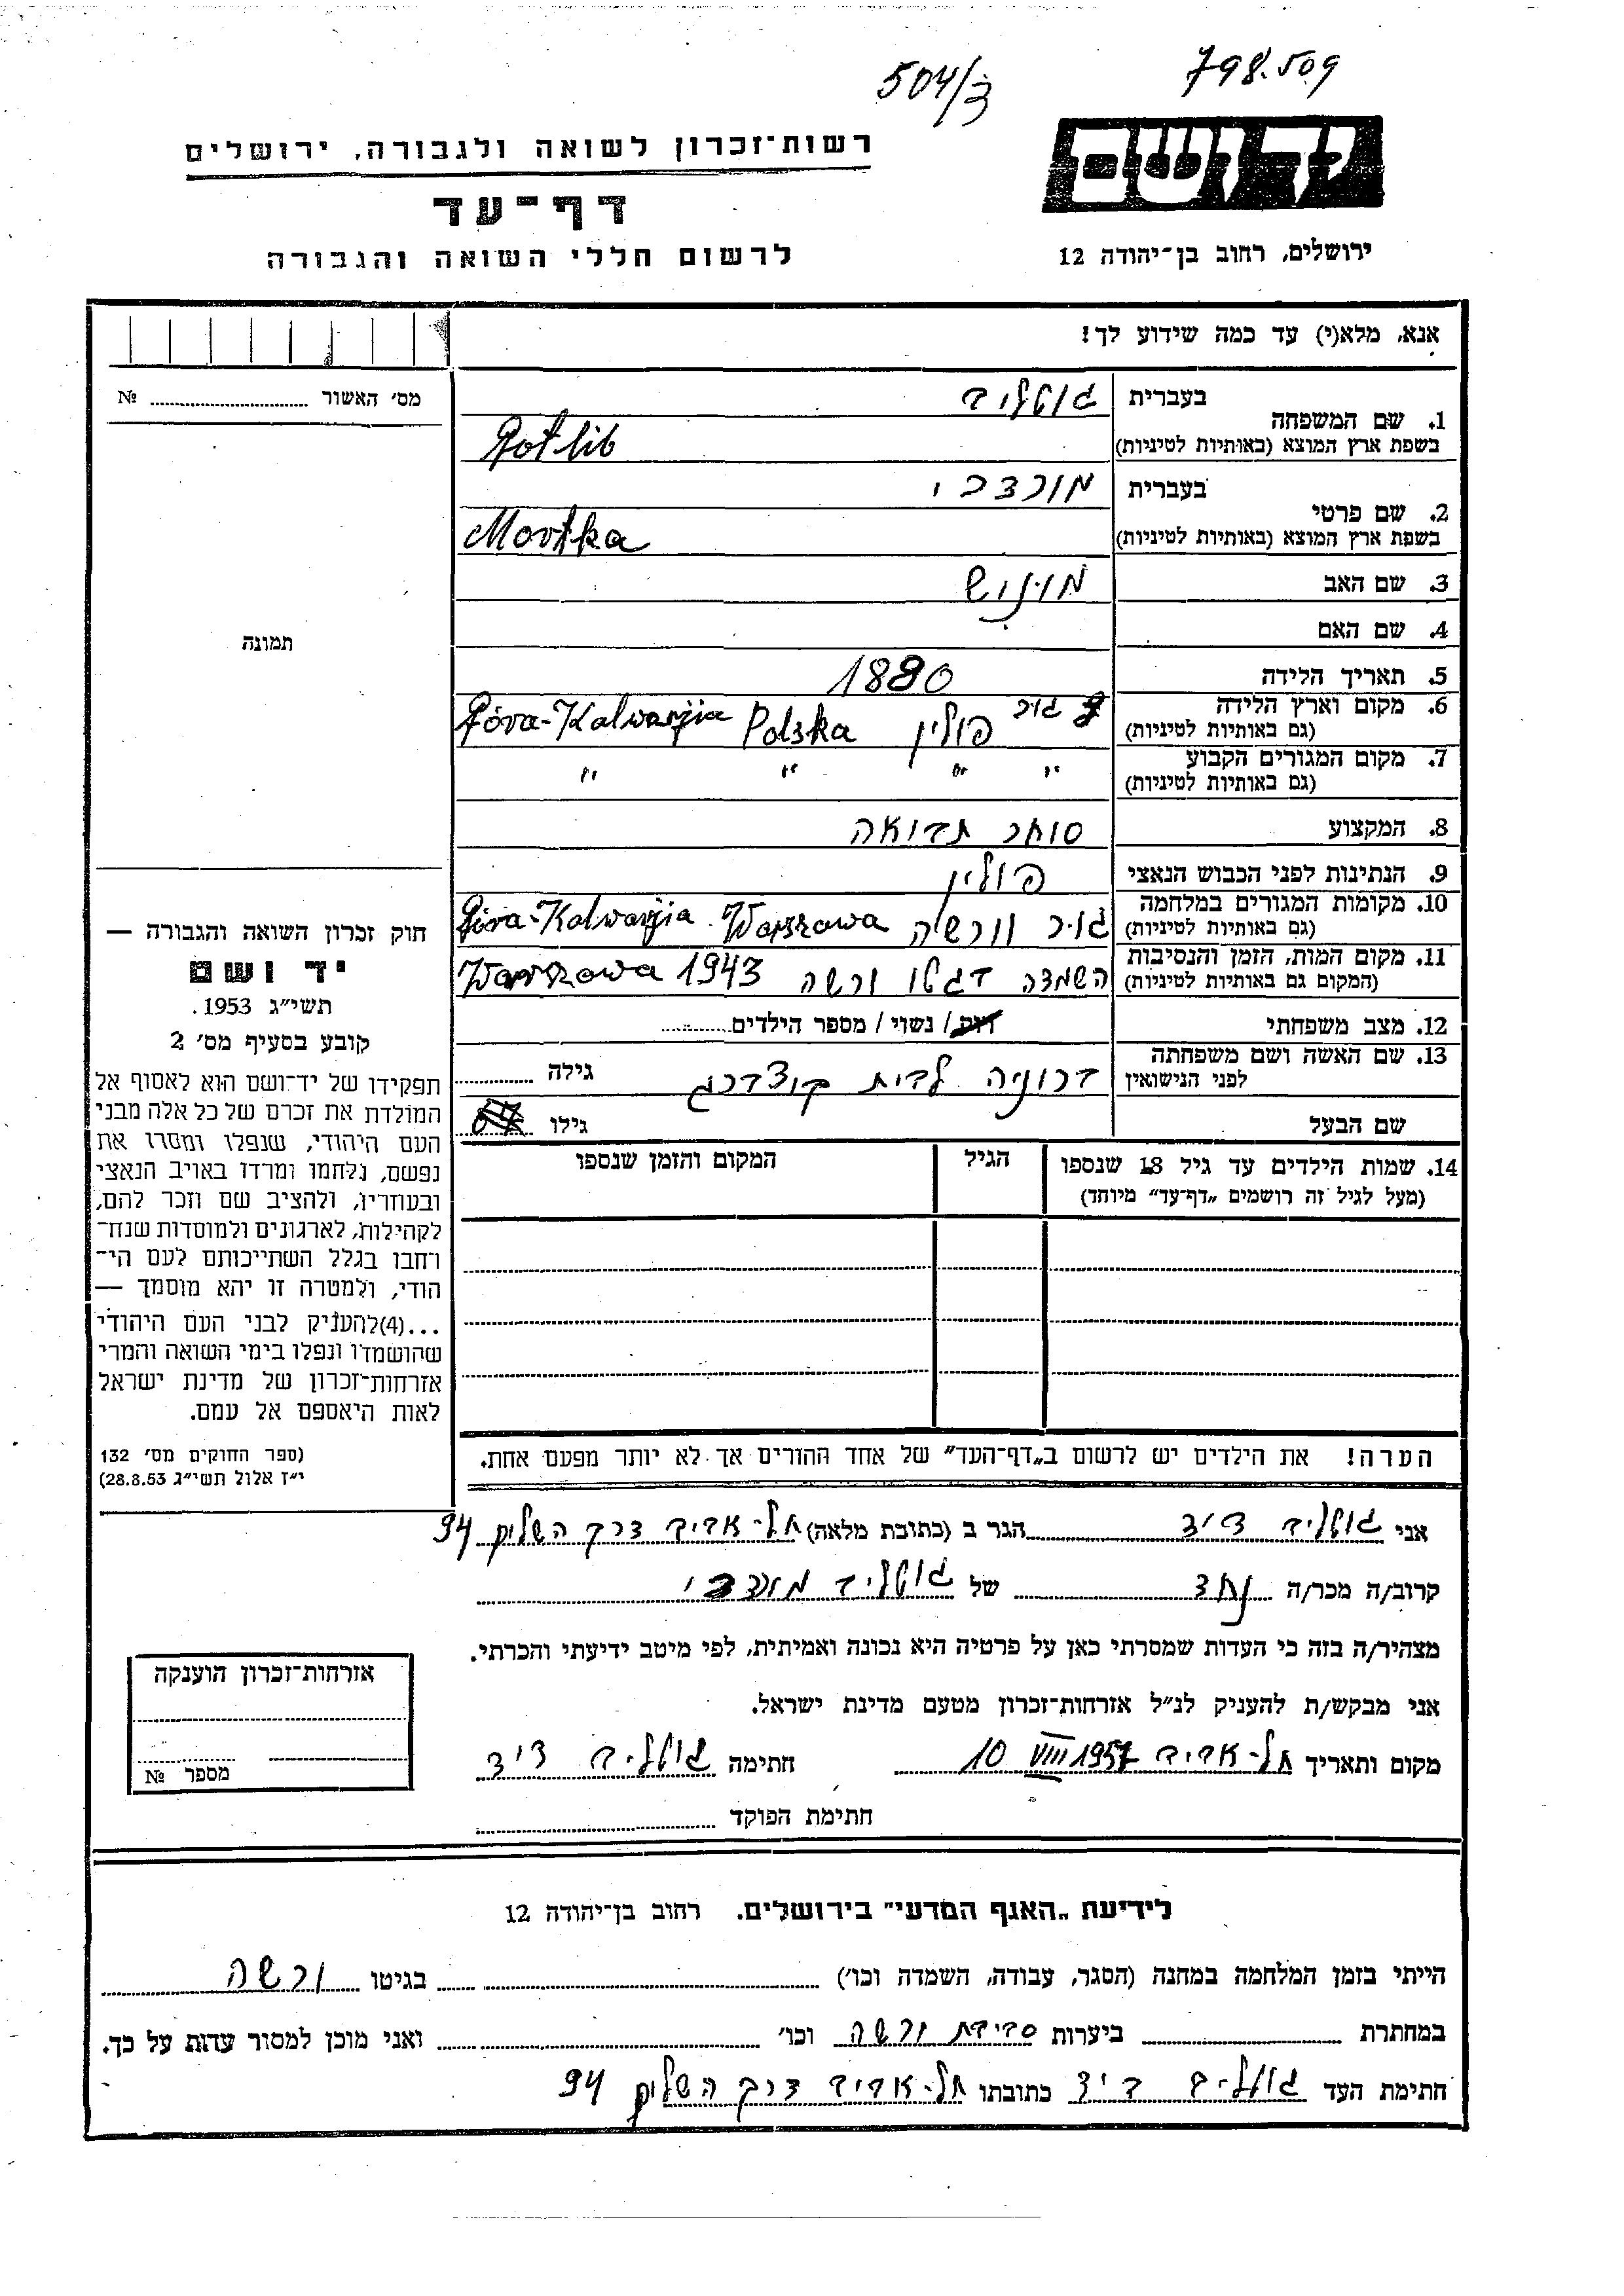 504/3
798.509
יד ושם
ירושלים, רחוב בן־יהודה 12
רשות־זכרון לשואה ולגבורה, ירושלים
דף־עד
לרשום חללי השואה והגבורה
אנא, מלא(י) עד כמה שידוע לך!
מס׳ האשור № 
תמונה
חוק זכרון השואה והגבורה —
יד ושם
תשי״ג 1953.
קובע בסעיף מס׳ 2
תפקידו של יד־ושם הוא לאסוף אל
המולדת את זכרם של כל אלה מבני
העם היהודי, שנפלו ומסרו את
נפשם, נלחמו ומרדו באויב הנאצי
ובעוזריו, ולהציב שם וזכר להם,
לקהילות, לארגונים ולמוסדות שנח־
רחבו בגלל השתייכותם לעם הי־
הודי, ולמטרה זו יהא מוסמך —
...(4) להעניק לבני העם היהודי
שהושמדו ונפלו בימי השואה והמרי
אזרחות־זכרון של מדינת ישראל
לאות היאספם אל עמם.
(ספר החוקים מס׳ 132
י״ז אלול תשי״ג 28.8.53)
1. שם המשפחה בעברית גוטליב
בשפת ארץ המוצא (באותיות לטיניות) Gotlib
2. שם פרטי בעברית מורדכי
בשפת ארץ המוצא (באותיות לטיניות) Mortka
3. שם האב
4. שם האם
5. תאריך הלידה 1880
6. מקום וארץ הלידה (גם באותיות לטיניות) גור פולין Polska Góra-Kalwarjia
7. מקום המגורים הקבוע (גם באותיות לטיניות) " " " "
8. המקצוע סוחר תבואה
9. הנתינות לפני הכבוש הנאצי פולין
10. מקומות המגורים במלחמה (גם באותיות לטיניות) גור וורשה Góra-Kalwarjia. Warszawa
11. מקום המות, הזמן והנסיבות (המקום גם באותיות לטיניות) השמדה בגטו ורשה Warszowa 1943
12. מצב משפחתי רווק / נשוי / מספר הילדים
13. שם האשה ושם משפחתה לפני הנישואין לבית גילה
שם הבעל גילו
14. שמות הילדים עד גיל 18 שנספו (מעל לגיל זה רושמים „דף־עד״ מיוחד) הגיל המקום והזמן שנספו
הערה! את הילדים יש לרשום ב„דף־העד״ של אחד ההורים אך לא יותר מפעם אחת.
אני גוטליב דוד הגר ב (כתובת מלאה) תל-אביב דרך השלום 94
קרוב/ה מכר/ה נכד של גוטליב מורדכי
מצהיר/ה בזה כי העדות שמסרתי כאן על פרטיה היא נכונה ואמיתית, לפי מיטב ידיעתי והכרתי.
אני מבקש/ת להעניק לנ״ל אזרחות־זכרון מטעם מדינת ישראל.
מקום ותאריך תל-אביב 10 VIII 1957 חתימה גוטליב דוד
חתימת הפוקד
אזרחות־זכרון הוענקה
מספר №
לידיעת „האגף המדעי״ בירושלים. רחוב בן־יהודה 12
הייתי בזמן המלחמה במחנה (הסגר, עבודה, השמדה וכו׳) בגיטו ורשה
במחתרת ביערות סביבת ורשה וכו׳ ואני מוכן למסור עדות על כך.
חתימת העד גוטליב דוד כתובתו תל-אביב דרך השלום 94